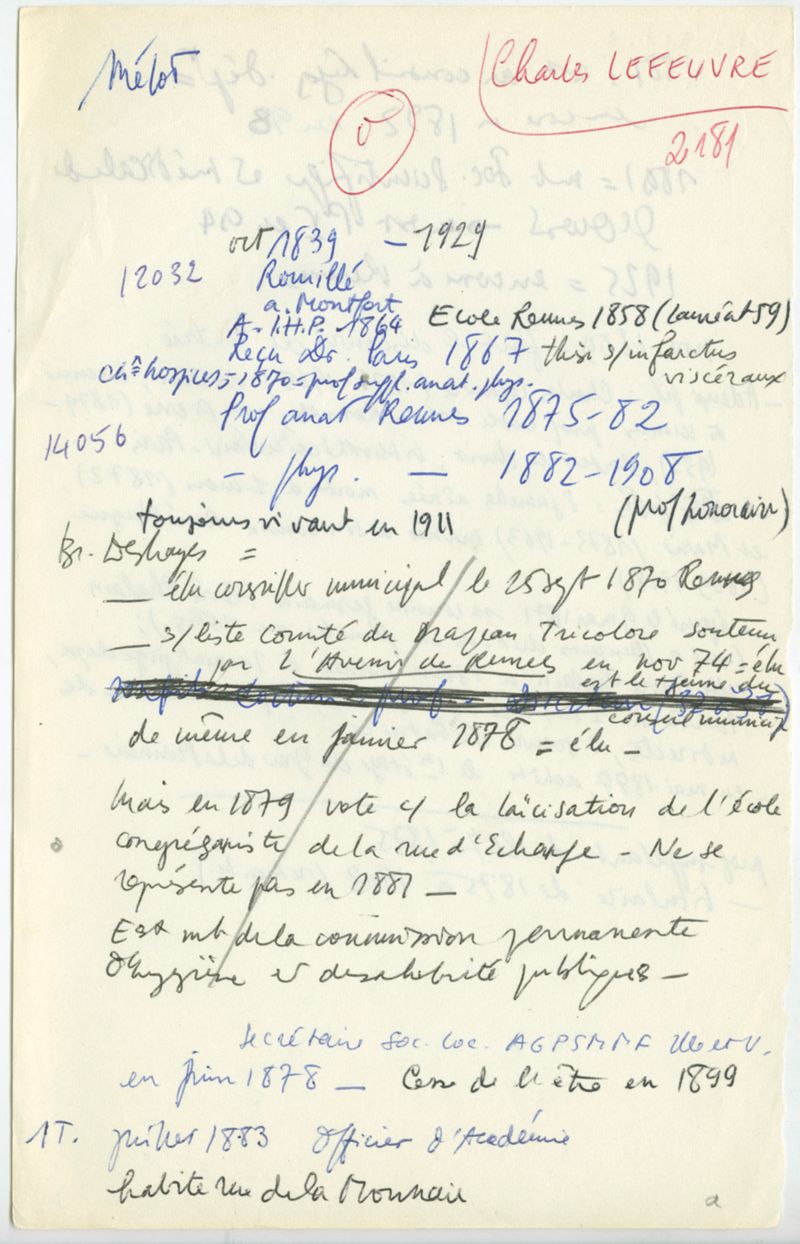 Mélot
Charles LEFEUVRE
2181
oct 1839 — 1929
12032 Romillé
a. Montfort
A.I.H.P. 1864 Ecole Rennes 1858 (lauréat 59)
Reçu Dr. Paris 1867 thèse s/infarctus
viscéraux
hospices = 1870 = prof suppl. anat. phys.
Prof anat Rennes 1875-82
14056
— phys. — 1882-1908
toujours vivant en 1911 (prof honoraire)
Br. Deshayes =
— élu conseiller municipal le 25 sept 1870 Rennes
— s/liste Comité du Drapeau Tricolore soutenu
par l'Avenir de Rennes en nov 74 = élu
est le du
conseil municip
de même en janvier 1878 = élu —
Mais en 1879 vote c/ la laïcisation de l'école
congréganiste de la rue d'Echange — Ne se
représente pas en 1881 —
Est mb de la commission permanente
d'hygiène et de salubrité publiques —
Secrétaire Soc. loc. AGPSMMF I&et V.
en juin 1878 — Cesse de l'être en 1899
1T. juillet 1883 Officier d'Académie
habite rue de la Monnaie
a